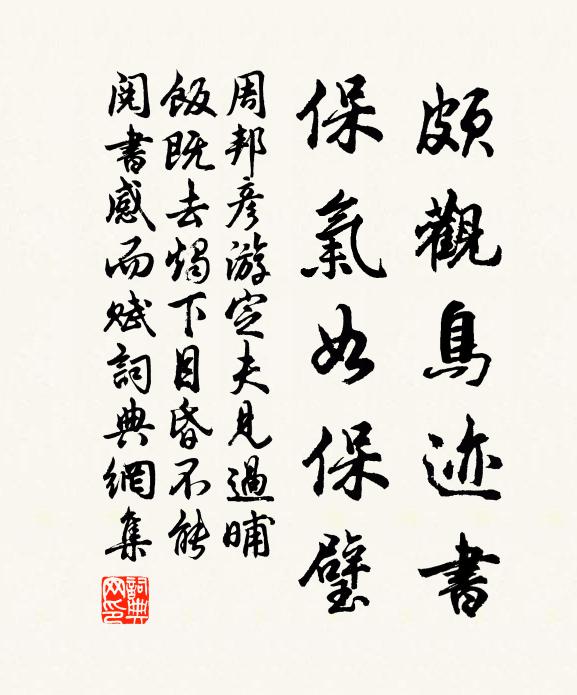 頗觀鳥迹書
保氣如保璧
周邦彥游定夫見過晡
飯既去燭下目昏不能
閱書感而賦詞典網集
詞典網印